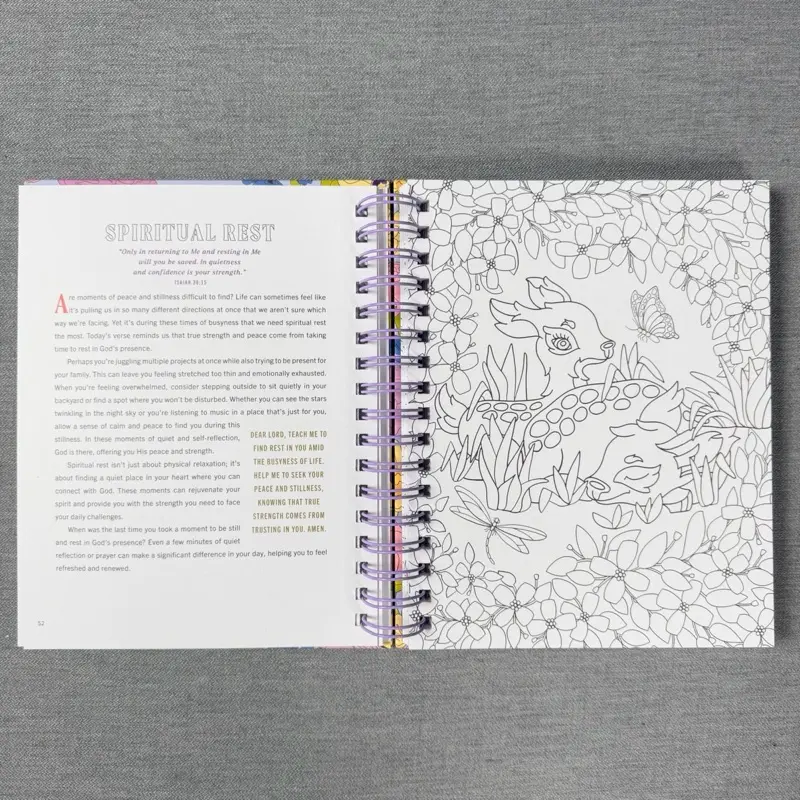 SPIRITUAL REST
"Only in returning to Me and resting in Me
will you be saved. In quietness
and confidence is your strength."
ISAIAH 30:15
Are moments of peace and stillness difficult to find? Life can sometimes feel like
it's pulling us in so many different directions at once that we aren't sure which
way we're facing. Yet it's during these times of busyness that we need spiritual rest
the most. Today's verse reminds us that true strength and peace come from taking
time to rest in God's presence.
Perhaps you're juggling multiple projects at once while also trying to be present for
your family. This can leave you feeling stretched too thin and emotionally exhausted.
When you're feeling overwhelmed, consider stepping outside to sit quietly in your
backyard or find a spot where you won't be disturbed. Whether you can see the stars
twinkling in the night sky or you're listening to music in a place that's just for you,
allow a sense of calm and peace to find you during this
stillness. In these moments of quiet and self-reflection,
God is there, offering you His peace and strength.
Spiritual rest isn't just about physical relaxation; it's
about finding a quiet place in your heart where you can
connect with God. These moments can rejuvenate your
spirit and provide you with the strength you need to face
your daily challenges.
When was the last time you took a moment to be still
and rest in God's presence? Even a few minutes of quiet
reflection or prayer can make a significant difference in your day, helping you to feel
refreshed and renewed.
DEAR LORD, TEACH ME TO
FIND REST IN YOU AMID
THE BUSYNESS OF LIFE.
HELP ME TO SEEK YOUR
PEACE AND STILLNESS,
KNOWING THAT TRUE
STRENGTH COMES FROM
TRUSTING IN YOU. AMEN.
52